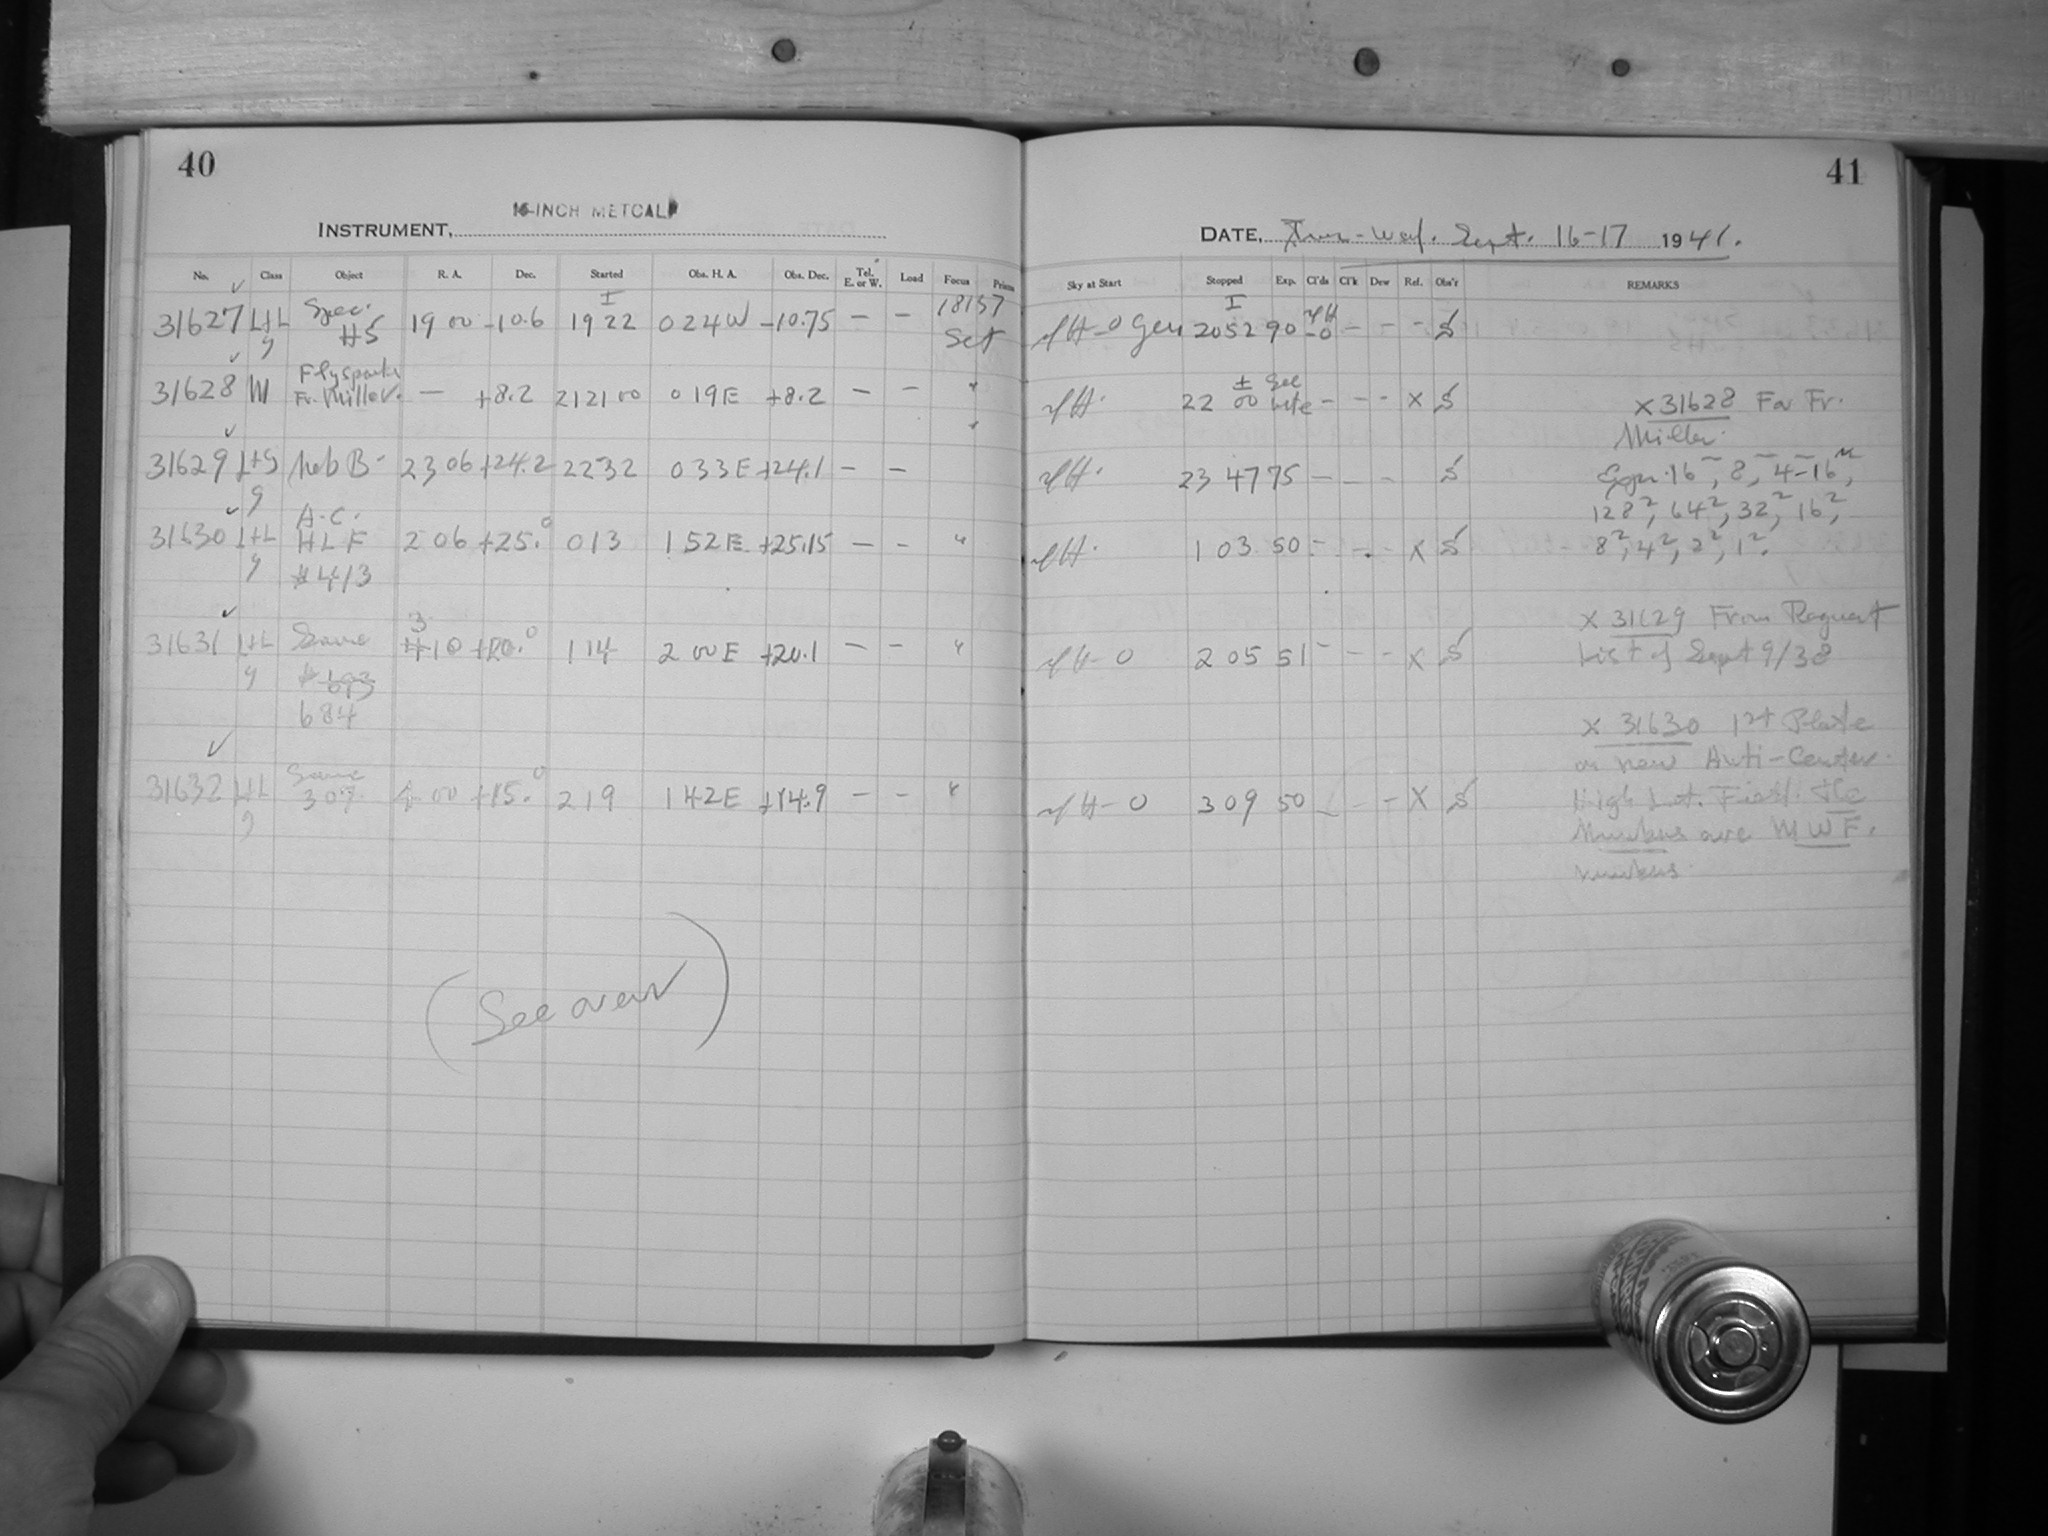 40
16-INCH METCALF
INSTRUMENT,
No. Class Object R. A. Dec. Started Obs. H. A. Obs. Dec. Tel. E. or W. Load Focus Prisms
31627 L+L g Spec. H5 19 00 -10.6 I 19 22 0 24 W -10.75 — — 18157 Set
31628 M Flyspanker Fr. Miller. — +8.2 21 21 00 0 19 E +8.2 — — "
31629 L+S g Neb B- 23 06 +24.2 22 32 0 33 E +24.1 — — "
31630 L+L g A-C. HLF #413 2 06 +25.° 0 13 1 52 E +25.15 — — "
31631 L+L g Same 684 3 10 +20.° 1 14 2 00 E +20.1 — — "
31632 L+L g Same 307. 4 00 +15.° 2 19 1 42 E +14.9 — — "
(See over)
41
DATE, Tues-Wed. Sept. 16-17 1941.
Sky at Start Stopped Exp. Cl'ds Cl'k Dew Ref. Obs'r REMARKS
I 20 52 90 — — —
± 22 00 See note — — — X
23 47 75 — — —
1 03 50 — — — X
2 05 51 — — — X
3 09 50 — — X
X 31628 For Fr.
Miller.
Exp. 16, 8, 4-16,
128, 64, 32, 16,
8, 4, 2, 1.
X 31629 From Request
List of Sept 9/38
X 31630 1st Plate
on new Anti-Center
High Lat. Field. The
Numbers are MWF.
numbers.